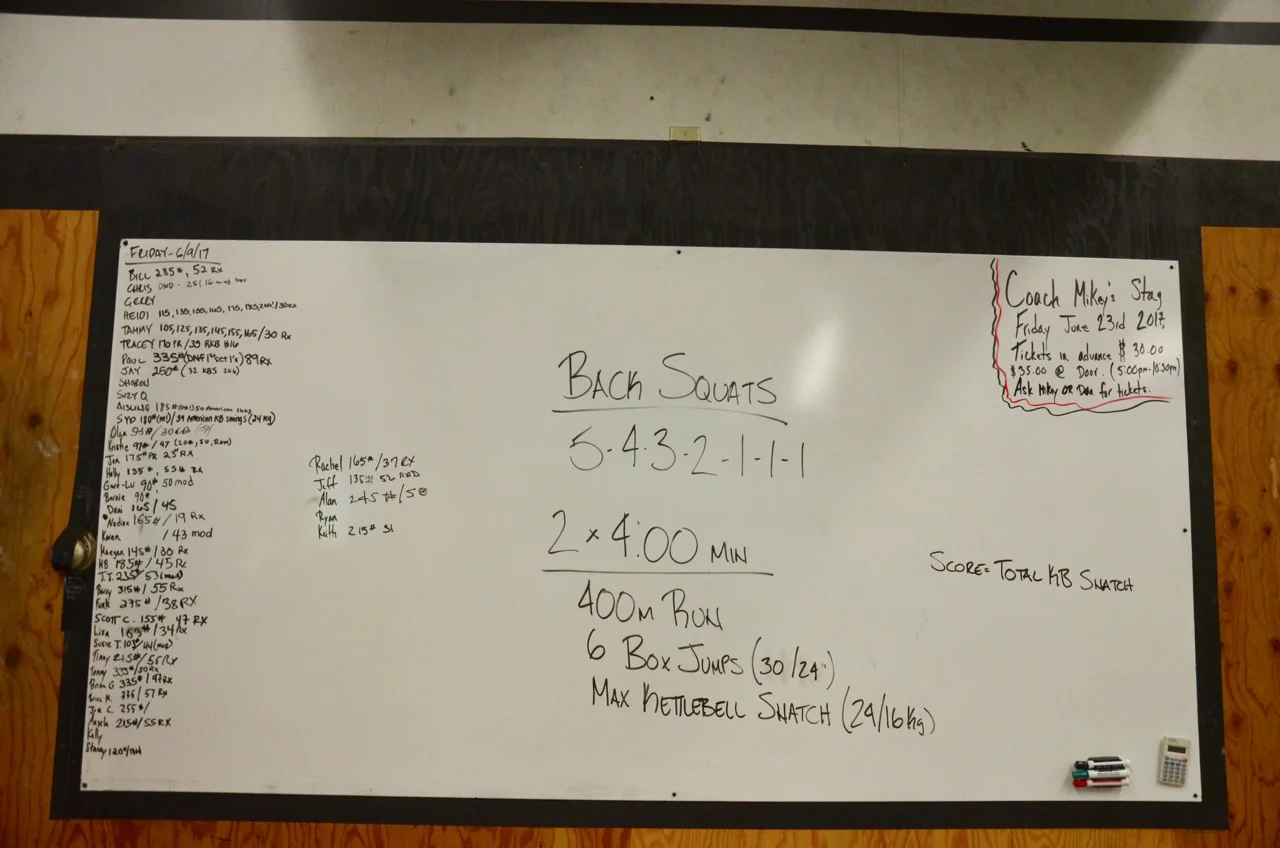 FRIDAY-6/9/17
BILL 285#, 52 RX
CHRIS
GERRY
HEIDI 115, 135, 150, 160, 175,
TAMMY 105, 125, 135, 145, 155, 165/30 RX
TRACEY 170 PR / 39 RKB #16
PAUL 335# (DNF 1st set 1's) 89 RX
JAY 250# (32 KBS 24)
SHARON
SUZY Q
AISLING 185# 50 American 16kg
SYD 180# / 39 American KB swings (24 kg)
Olga 95# /
Kristie 97# / 47
Jen 175# PR 25 RX
Holly 155#, 55# RX
90# 50 mod
Bernie 90#
Dani 165 / 45
Nadine 165# / 19 Rx
Karen / 43 mod
Maegan 145# / 30 Rx
HB 185# / 45 Rx
J.J. 235# 53 (mod)
Barry 315# / 55 Rx
275# / 38 RX
SCOTT C. 155# 47 RX
Lisa / 34 Rx
Susie T.
/ 55 RX
335# / 50 RX
Brian G 335# / 47 RX
Brian M. / 57 Rx
C. 255# /
Angela 215# / 55 RX
Kelly
Stacey 120#
Rachel 165# / 37 RX
Jeff 135# 52 MOD
Alan 245# / 58
Ryan
Keith 215# 51
BACK SQUATS
5-4-3-2-1-1-1
2 x 4:00 MIN
400M RUN
6 BOX JUMPS (30/24")
MAX KETTLEBELL SNATCH (24/16Kg)
SCORE = TOTAL KB SNATCH
Coach Mikey's Stag
Friday June 23rd 2017,
Tickets in advance $ 30.00
$35.00 @ Door. (5:00pm-10:30pm)
Ask Mikey OR Dan for tickets.